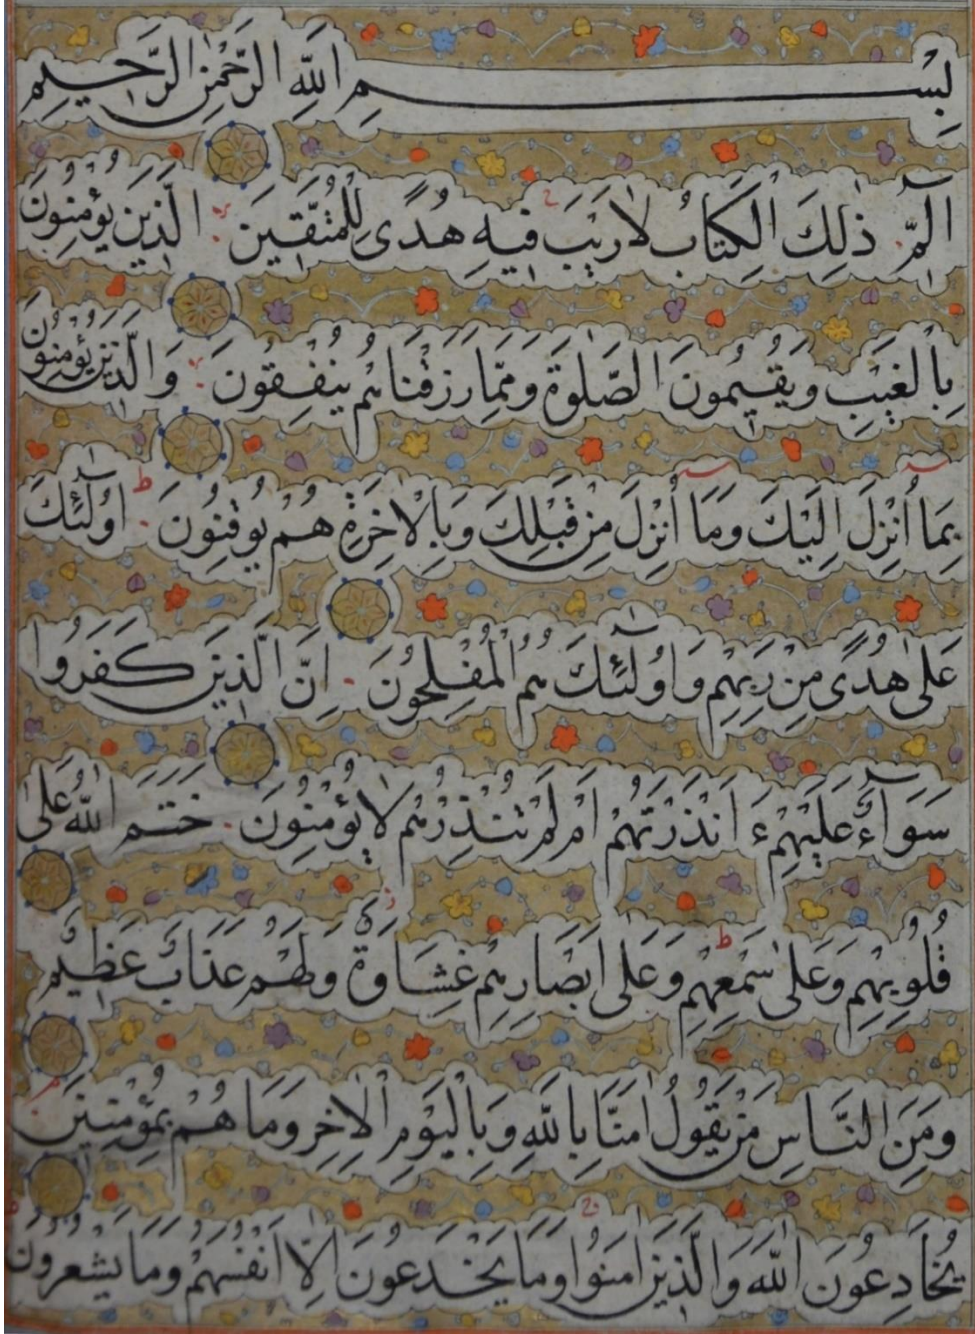 بِسْمِ اللّٰهِ الرَّحْمٰنِ الرَّحِيمِ
الٓمّٓ ذٰلِكَ الْكِتَابُ لَا رَيْبَ فِيهِ هُدًى لِلْمُتَّقِينَ الَّذِينَ يُؤْمِنُونَ
بِالْغَيْبِ وَيُقِيمُونَ الصَّلٰوةَ وَمِمَّا رَزَقْنَاهُمْ يُنْفِقُونَ وَالَّذِينَ يُؤْمِنُونَ
بِمَا أُنْزِلَ اِلَيْكَ وَمَا أُنْزِلَ مِنْ قَبْلِكَ وَبِالْاٰخِرَةِ هُمْ يُوقِنُونَ اُولٰٓئِكَ
عَلٰى هُدًى مِنْ رَبِّهِمْ وَاُولٰٓئِكَ هُمُ الْمُفْلِحُونَ اِنَّ الَّذِينَ كَفَرُوا
سَوَآءٌ عَلَيْهِمْ ءَاَنْذَرْتَهُمْ اَمْ لَمْ تُنْذِرْهُمْ لَا يُؤْمِنُونَ خَتَمَ اللّٰهُ عَلٰى
قُلُوبِهِمْ وَعَلٰى سَمْعِهِمْ وَعَلٰى اَبْصَارِهِمْ غِشَاوَةٌ وَلَهُمْ عَذَابٌ عَظِيمٌ
وَمِنَ النَّاسِ مَنْ يَقُولُ اٰمَنَّا بِاللّٰهِ وَبِالْيَوْمِ الْاٰخِرِ وَمَا هُمْ بِمُؤْمِنِينَ
يُخَادِعُونَ اللّٰهَ وَالَّذِينَ اٰمَنُوا وَمَا يَخْدَعُونَ اِلَّا اَنْفُسَهُمْ وَمَا يَشْعُرُونَ